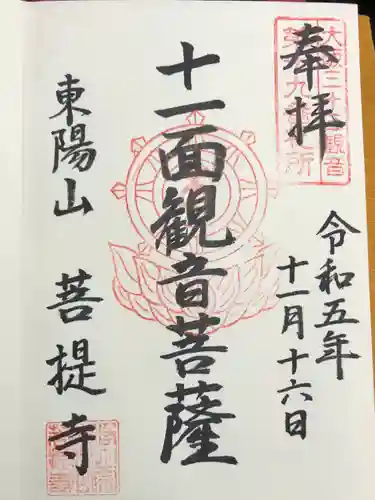 奉拝
令和五年
十一月十六日
十一面観音菩薩
東陽山 菩提寺